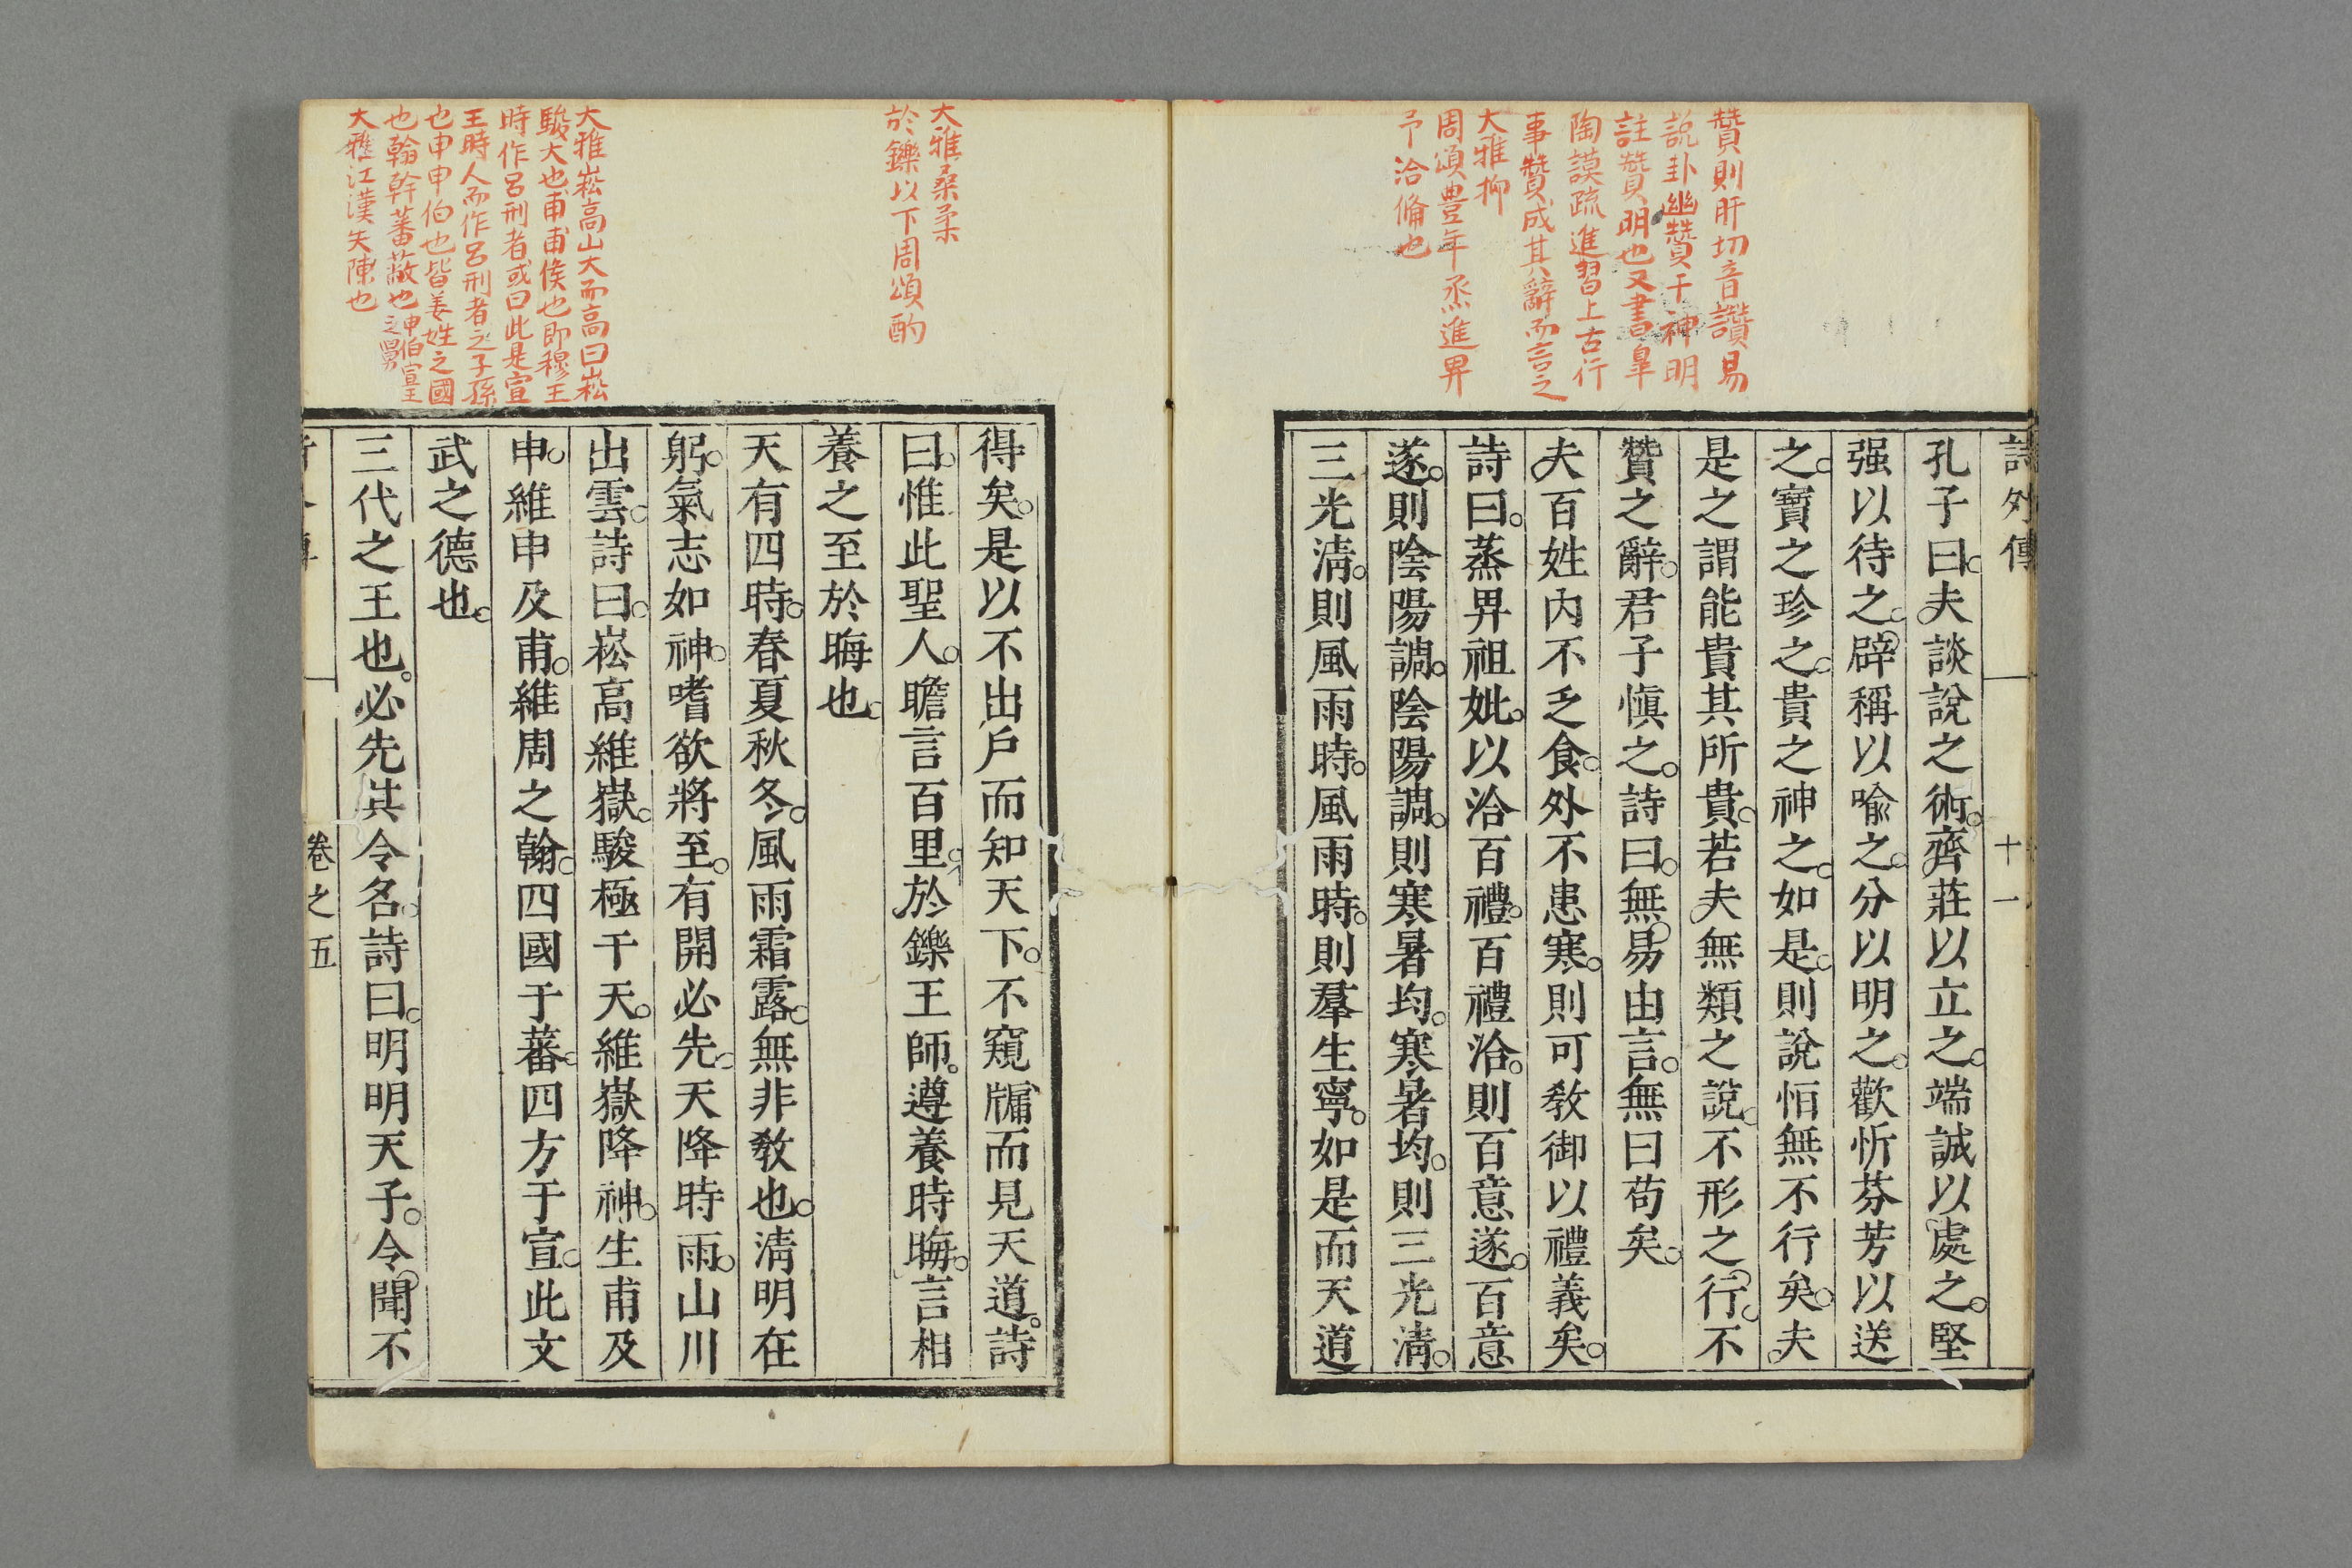 贊則肝切音讚易
說卦幽贊于神明
註贊明也又書皐
陶謨疏進習上古行
事贊成其辭而言之
大雅抑
周頌豊年烝進畀
予洽僃也
詩外傳
十一
孔子曰夫談說之術齊莊以立之端誠以處之堅
强以待之辟稱以喻之分以明之歡忻芬芳以送
之寶之珍之貴之神之如是則說恒無不行矣夫
是之謂能貴其所貴若夫無類之說不形之行不
贊之辭君子慎之詩曰無易由言無曰苟矣
夫百姓內不乏食外不患寒則可敎御以禮義矣
詩曰蒸畀祖妣以洽百禮百禮洽則百意遂百意
遂則陰陽調陰陽調則寒暑均寒暑均則三光淸
三光淸則風雨時風雨時則羣生寧如是而天道
大雅桑柔
於鑠以下周頌酌
大雅崧高山大而高曰崧
駿大也甫甫侯也即穆王
時作呂刑者或曰此是宣
王時人而作呂刑者之子孫
也申申伯也皆姜姓之國
也翰幹蕃蔽也申伯宣王之舅
大雅江漢矢陳也
得矣是以不出戶而知天下不窺牖而見天道詩
曰惟此聖人瞻言百里於鑠王師遵養時晦言相
養之至於晦也
天有四時春夏秋冬風雨霜露無非敎也淸明在
躬氣志如神嗜欲將至有開必先天降時雨山川
出雲詩曰崧高維嶽駿極于天維嶽降神生甫及
申維申及甫維周之翰四國于蕃四方于宣此文
武之德也
三代之王也必先其令名詩曰明明天子令聞不
卷之五